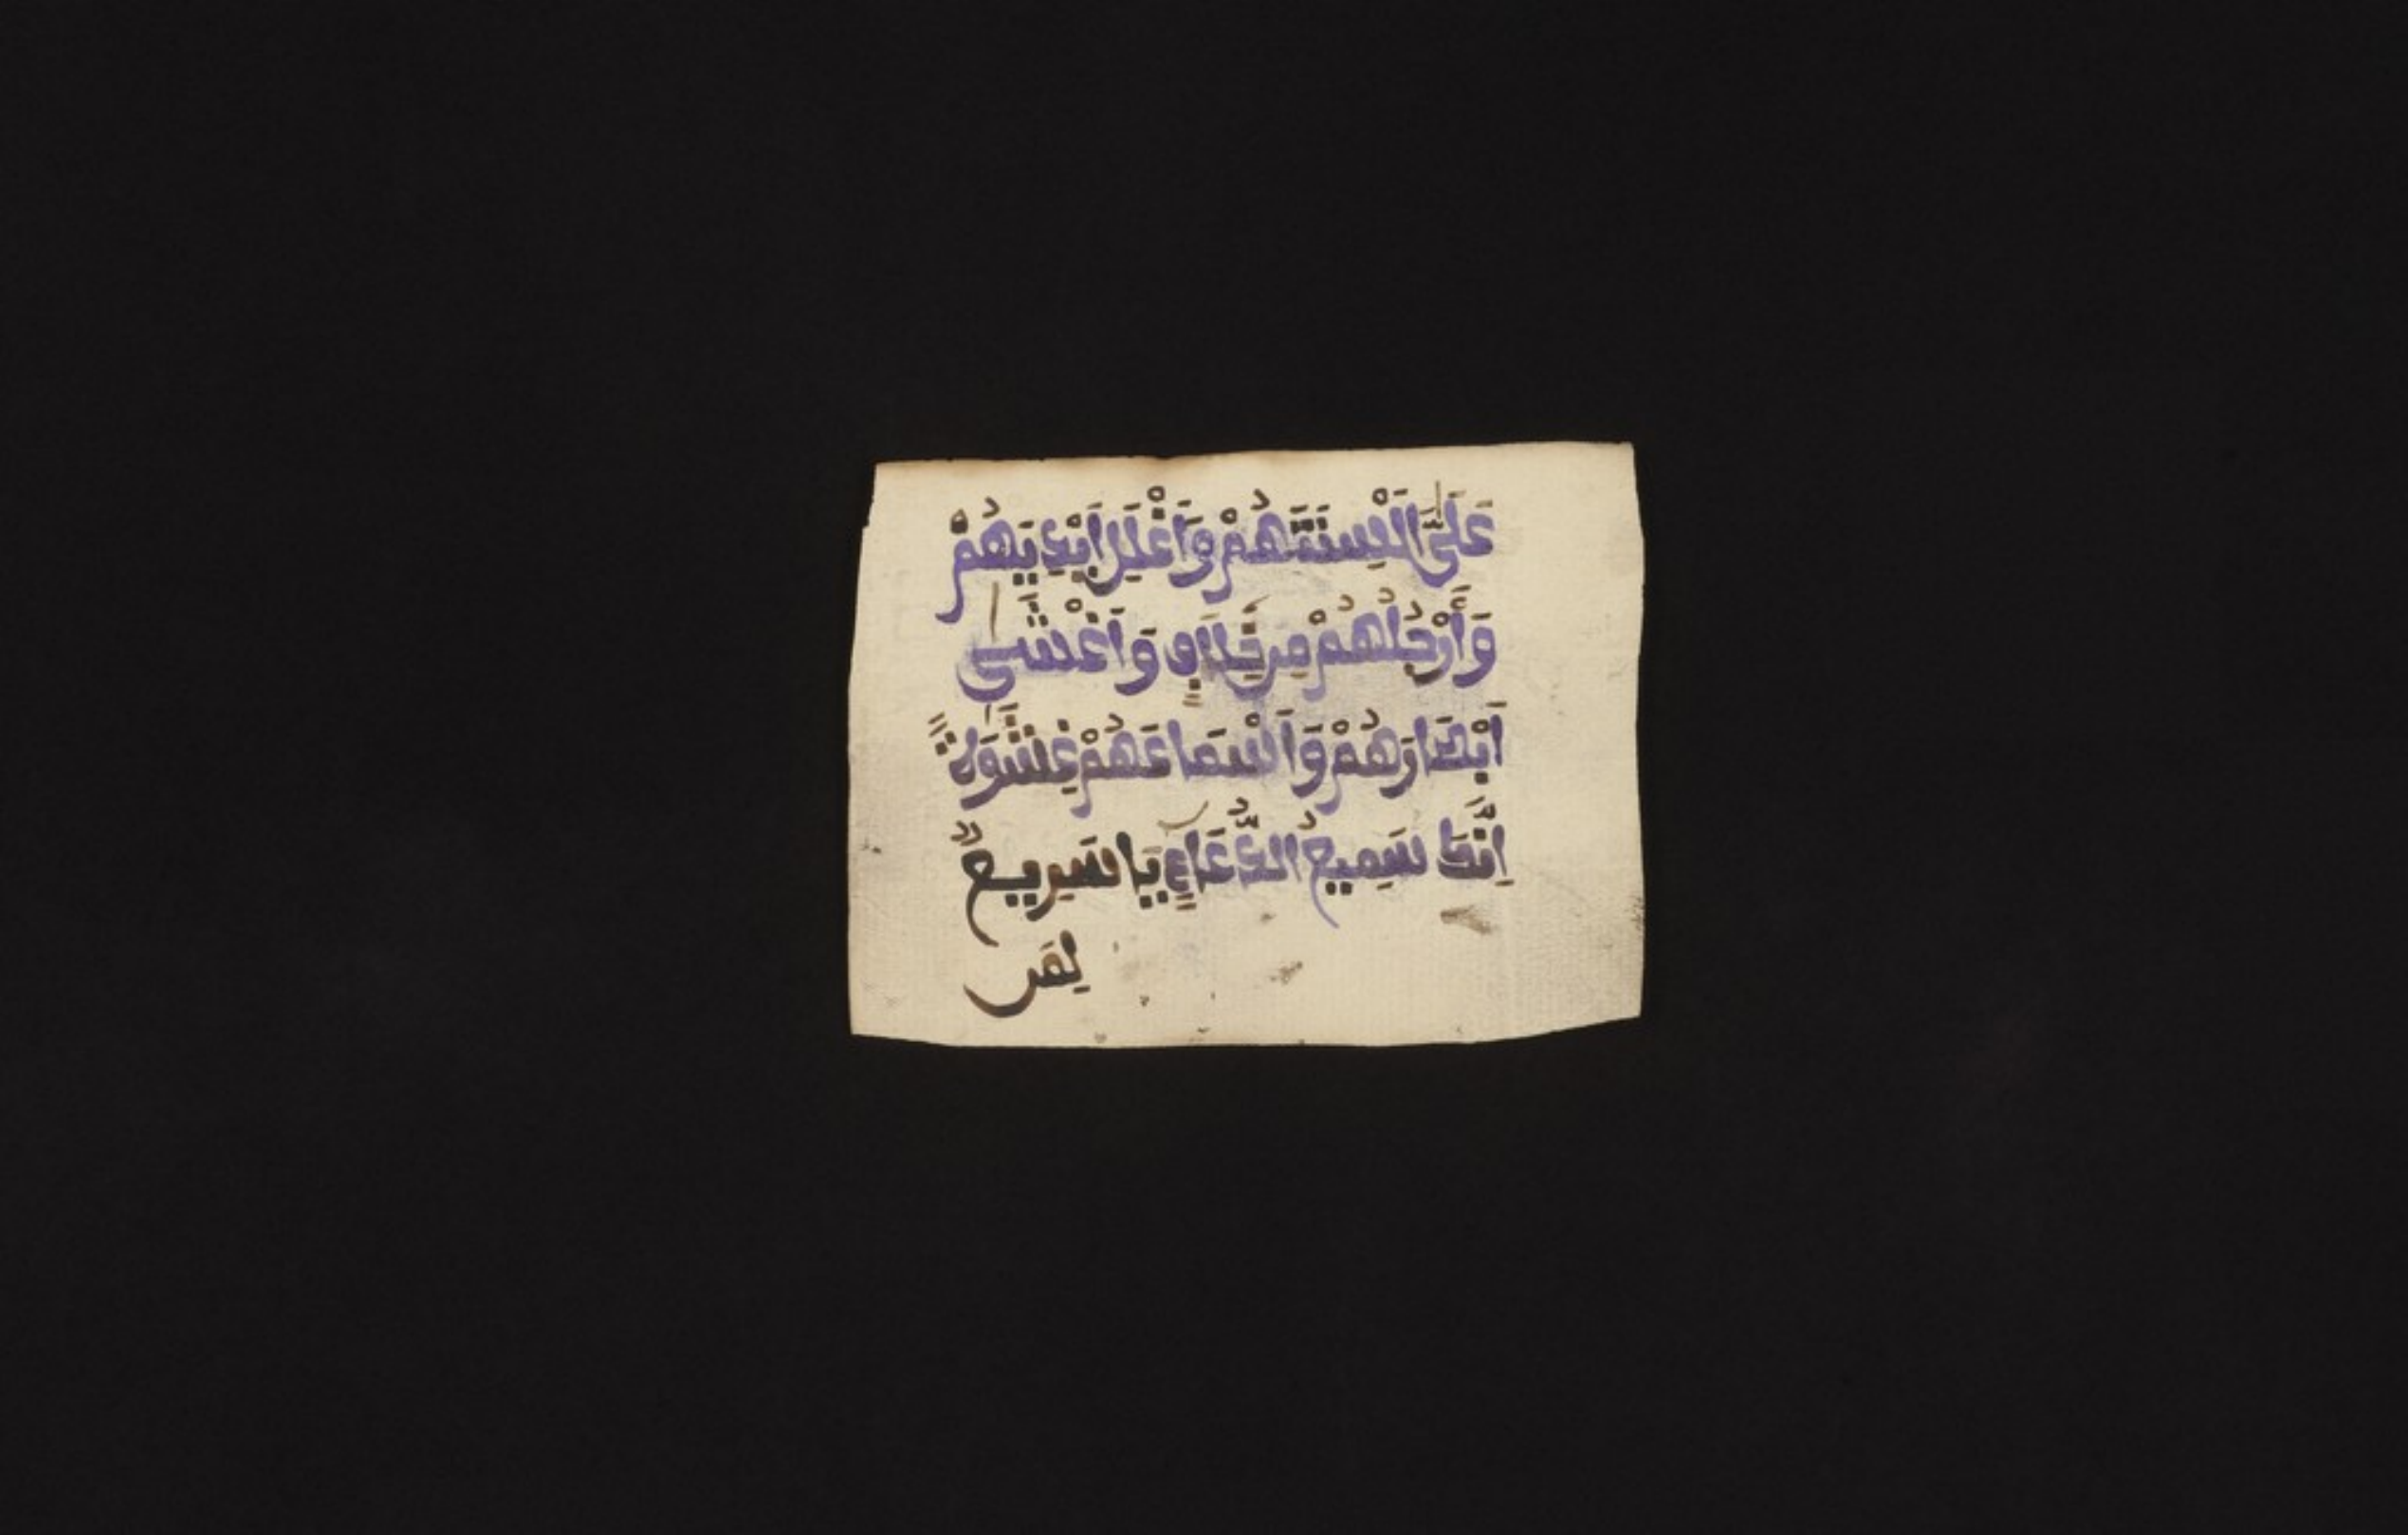 عَلَىَّ اَلْسِنَتَهُمْ وَاَغْلِلَ اَيْدِيَهُمْ
وَأَرْجُلَهُمْ مِن خِلَاڢٍ وَاَغْشَى
اَبْصَارَهُمْ وَاَسْمَاعَهُمْ غِشَٰوَةً
اِنَّكَ سَمِيعُ الدُّعَاءِ يَا سَرِيعٌ
لِمَن